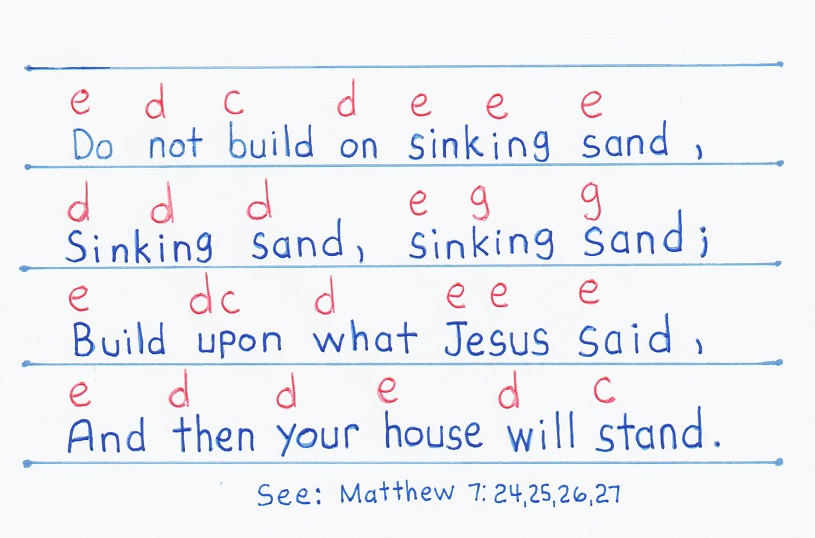 e d c d e e e
Do not build on sinking sand,
d d d e g g
Sinking sand, sinking sand;
e dc d e e e
Build upon what Jesus said,
e d d e d c
And then your house will stand.
See: Matthew 7:24,25,26,27